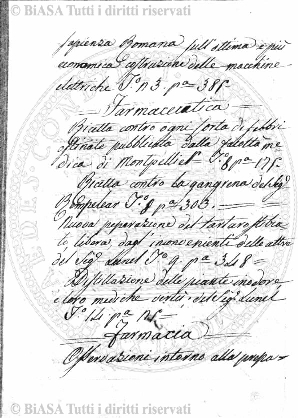 © BIASA Tutti i diritti riservati
sapienza Romana sull'ottima e più
economica costruzione delle macchine
elettriche T.º n 3. p.ª 385.
Farmaceutica
Ricetta contro ogni sorta di febbri
pubblicata dalla facoltà me
dica di Montpellier T.º 8 p.ª 175.
Ricetta contro la gangrena del Sig.r
T.º 8 p.ª 303.
Nuova preparazione del tartaro stibia
to, libera dagl'inconvenienti delle altre
del Sig.r T.º 9. p.ª 348
Distillazione delle piante inodore
e loro mediche virtù, del Sig.r Lunel
T.º 14 p.ª 125
Farmacia
Osservazioni intorno alla prepa=
© BIASA Tutti i diritti riservati